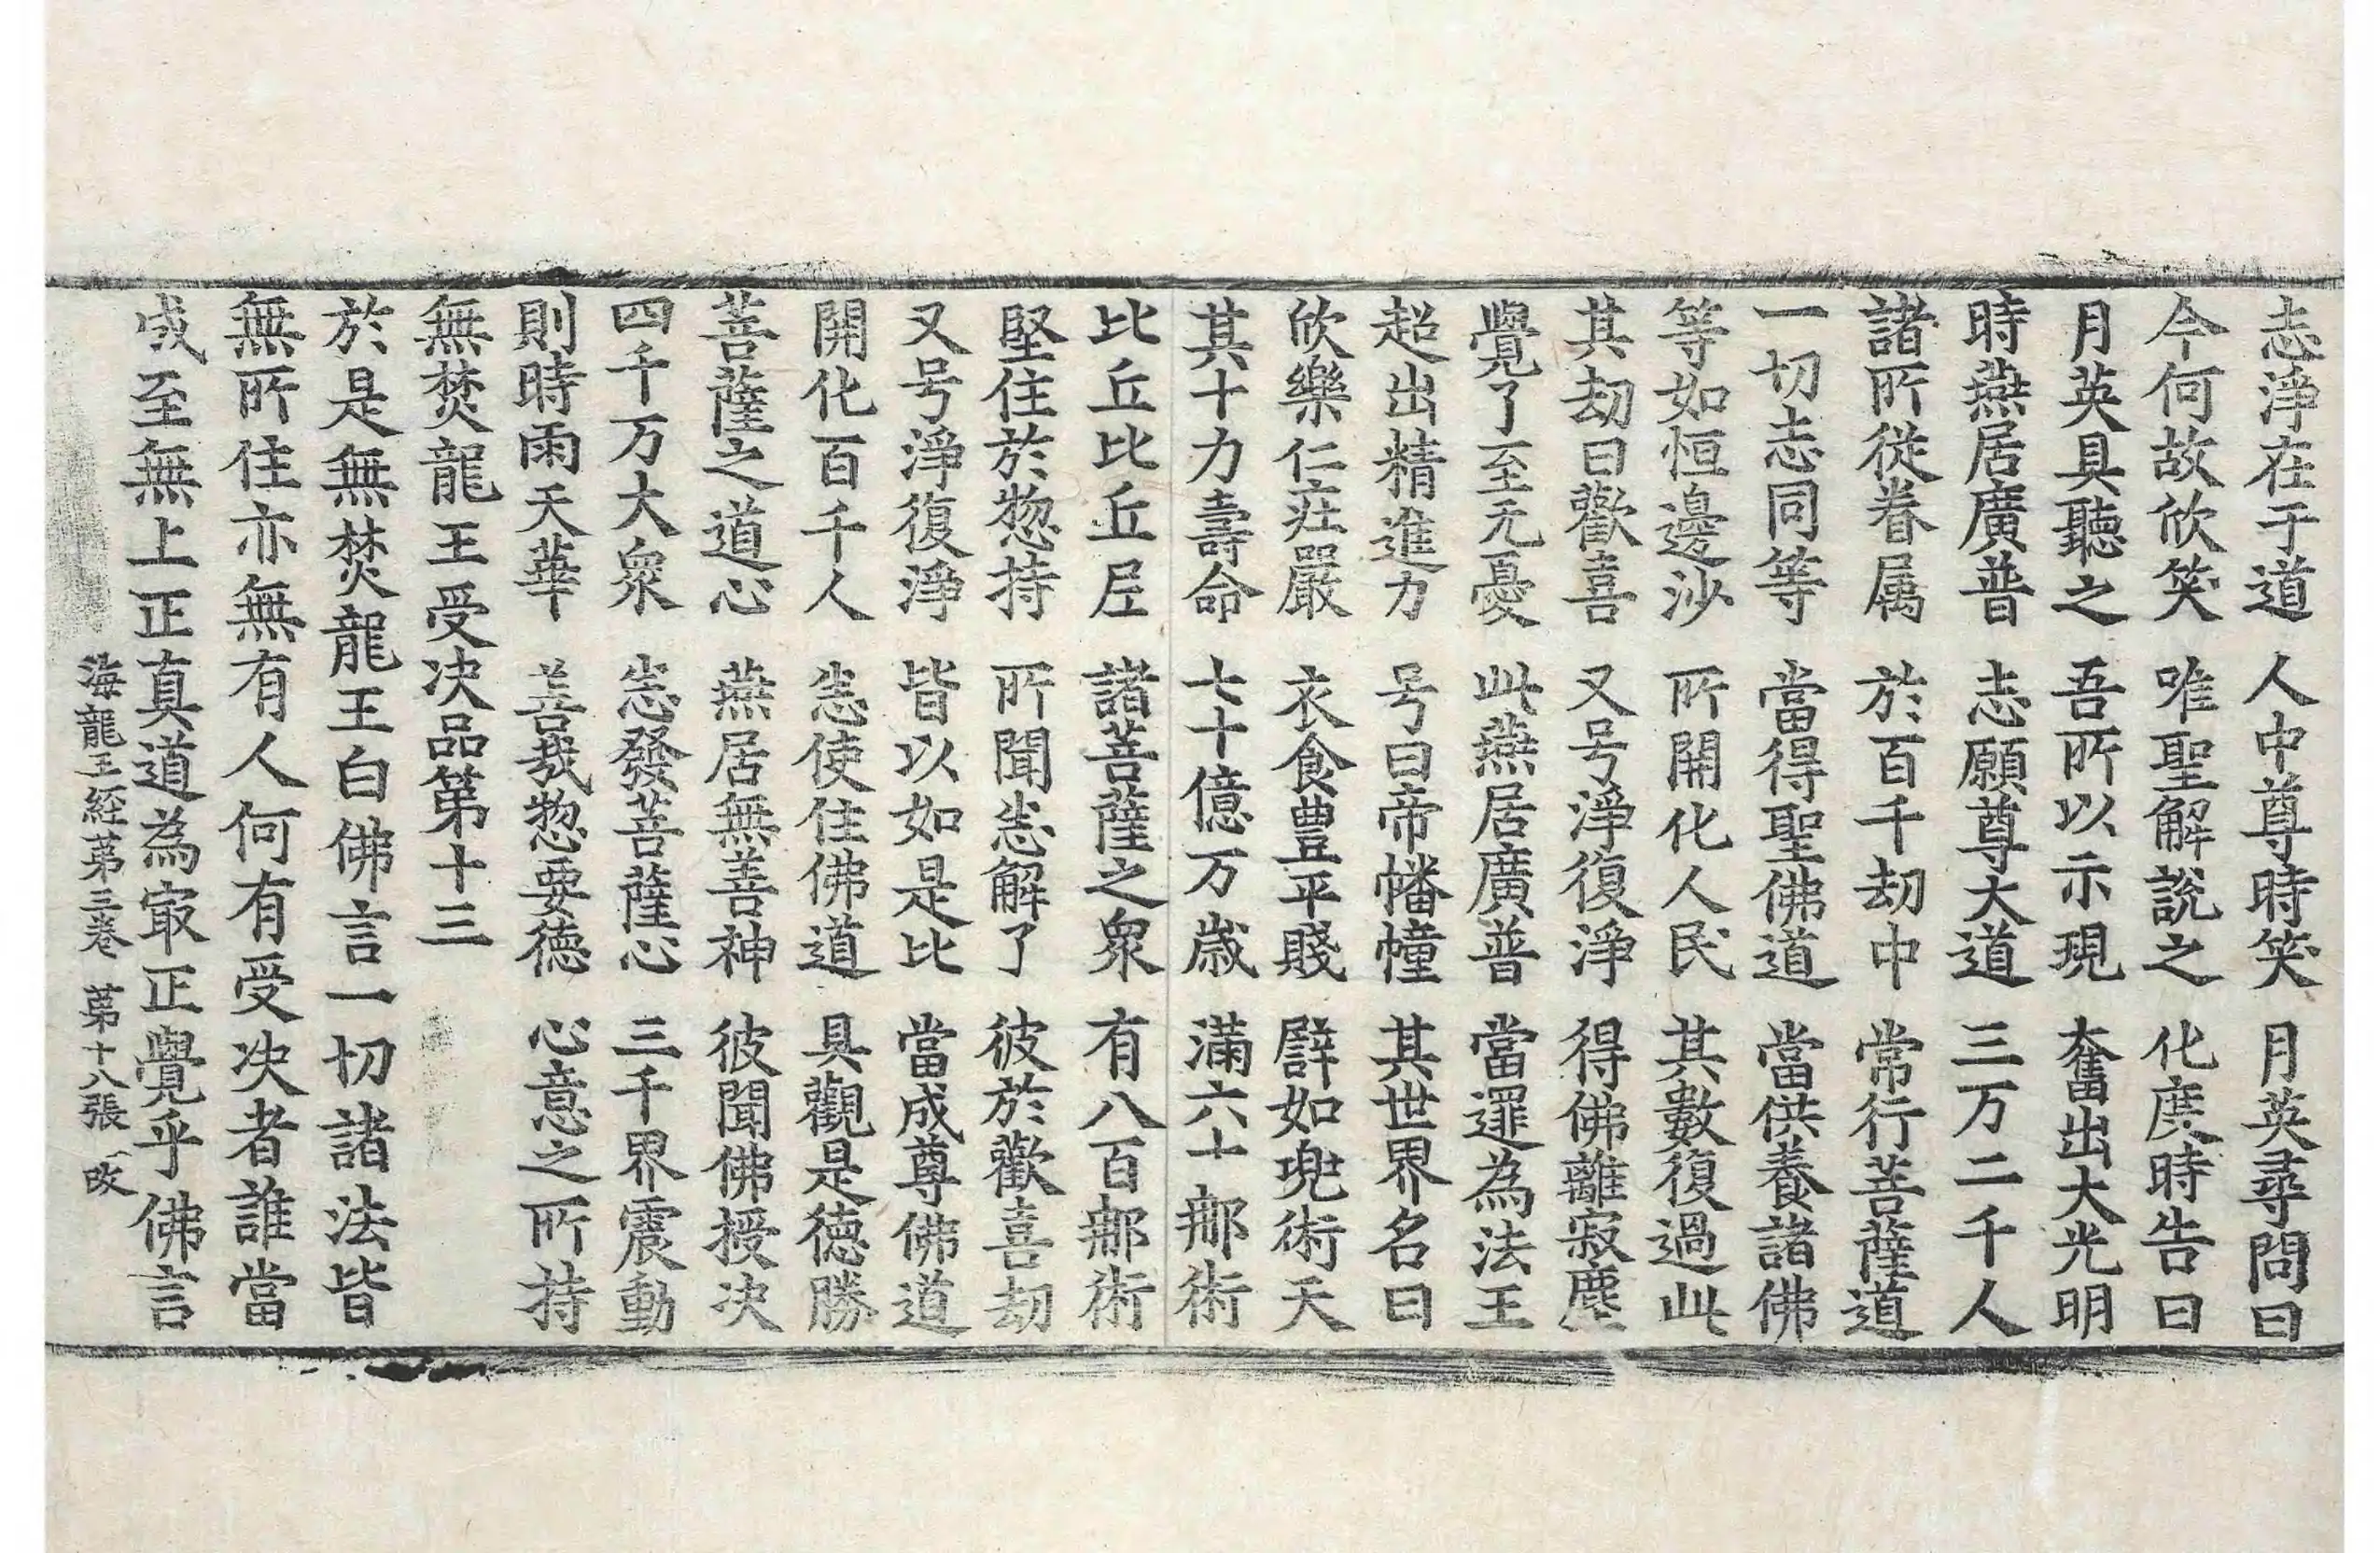 志淨在于道　人中尊時笑　月英尋問曰
今何故欣笑　唯聖解說之　化度時告曰
月英具聽之　吾所以示現　奮出大光明
時燕居廣普　志願尊大道　三万二千人
諸所從眷属　於百千劫中　常行菩薩道
一切志同等　當得聖佛道　當供養諸佛
等如恒邊沙　所開化人民　其數復過此
其劫曰歡喜　又号淨復淨　得佛離寂塵
覺了至无憂　此燕居廣普　當逮為法王
超出精進力　号曰帝幡幢　其世界名曰
欣樂仁莊嚴　衣食豊平賤　譬如兜術天
其十力壽命　七十億万歲　滿六十那術
比丘比丘尼　諸菩薩之衆　有八百那術
堅住於惣持　所聞悉解了　彼於歡喜劫
又号淨復淨　皆以如是比　當成尊佛道
開化百千人　悉使住佛道　具觀是德勝
菩薩之道心　燕居無善神　彼聞佛授决
四千万大衆　悉發菩薩心　三千界震動
則時雨天華　善哉惣要德　心意之所持
無焚龍王受决品第十三
於是無焚龍王白佛言一切諸法皆
無所住亦無有人何有受决者誰當
成至無上正真道為㝡正覺乎佛言
海龍王経苐三卷　苐十八張　改